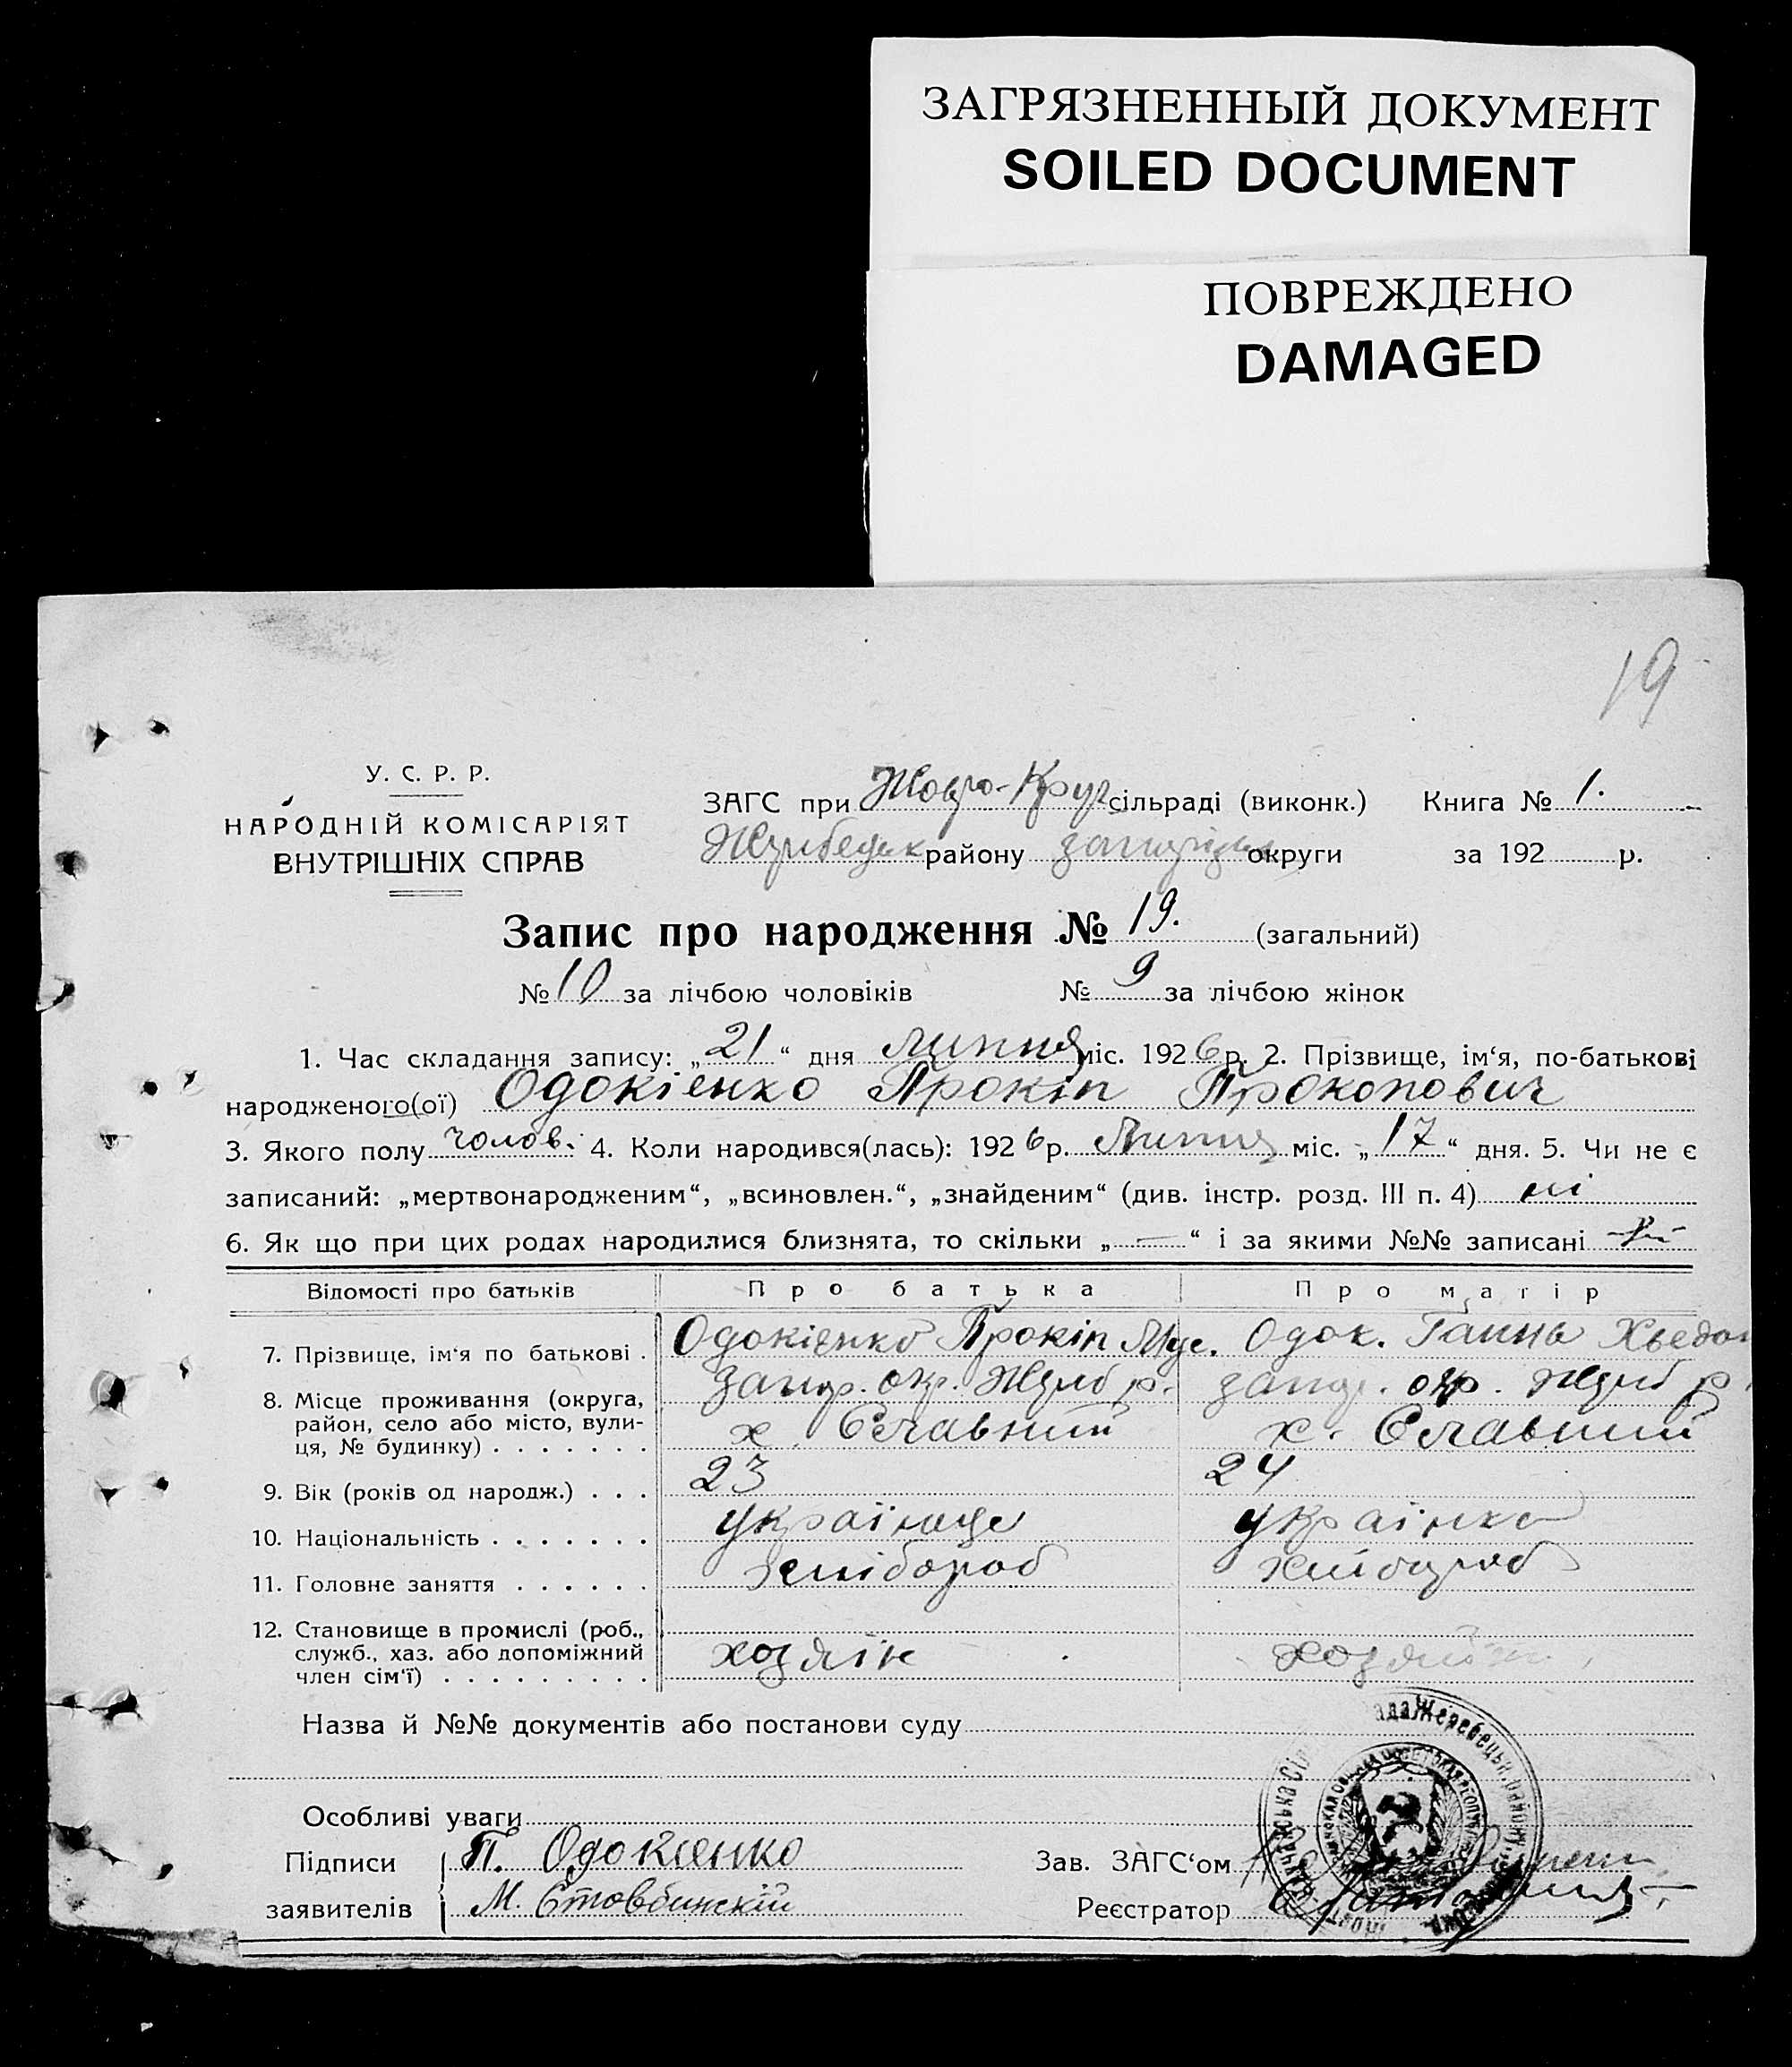 ЗАГРЯЗНЕННЫЙ ДОКУМЕНТ
SOILED DOCUMENT
ПОВРЕЖДЕНО
DAMAGED
19
У. С. Р. Р.
НАРОДНІЙ КОМІСАРІЯТ
ВНУТРІШНІХ СПРАВ
ЗАГС при сільраді (виконк.) Книга № 1.
району округи за 192 р.
Запис про народження № 19. (загальний)
№ 10 за лічбою чоловіків № 9 за лічбою жінок
1. Час складання запису: „21“ дня липня міс. 1926 р. 2. Прізвище, ім‘я, по-батькові
народженого(ої) Одокіенко Прокіп Прокопович
3. Якого полу чолов. 4. Коли народився(лась): 1926 р. Липня міс. „17“ дня. 5. Чи не є
записаний: „мертвонародженим“, „всиновлен.“, „знайденим“ (див. інстр. розд. III п. 4) ні
6. Як що при цих родах народилися близнята, то скільки „—“ і за якими №№ записані
Відомості про батьків Про батька Про матір
7. Прізвище, ім‘я по батькові . Одокіенко Прокіп Мус. Одок. Ганна Хведо
8. Місце проживання (округа, район, село або місто, вулиця, № будинку) . . . . . . .
Запор. окр. Жереб р. запор. окр. Жереб р.
х. Єлавний х. Єлавний
9. Вік (років од народж.) . . . 23 24
10. Національність . . . . . . . українець українка
11. Головне заняття . . . . . . хлібороб хлібороб
12. Становище в промислі (роб., служб., хаз. або допоміжний член сім‘ї) . . . . . . . . .
хозяїн
Назва й №№ документів або постанови суду
Особливі уваги
Підписи заявителів
П. Одокіенко
М. Стовбинскій
Зав. ЗАГС‘ом
Реєстратор